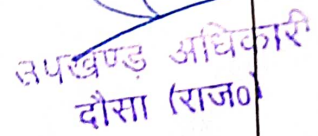 उपखण्ड़ अधिकारी
दौसा (राज०)